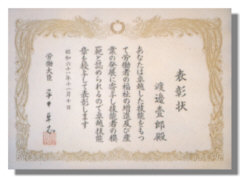 表彰状
渡邉壹郎殿
あなたは卓越した技能をもつ
て労働者の福祉の増進及び産
業の発展に寄与し技能者の模
範と認められるので卓越技能
章を授与して表彰します
昭和六十一年十一月十日
労働大臣